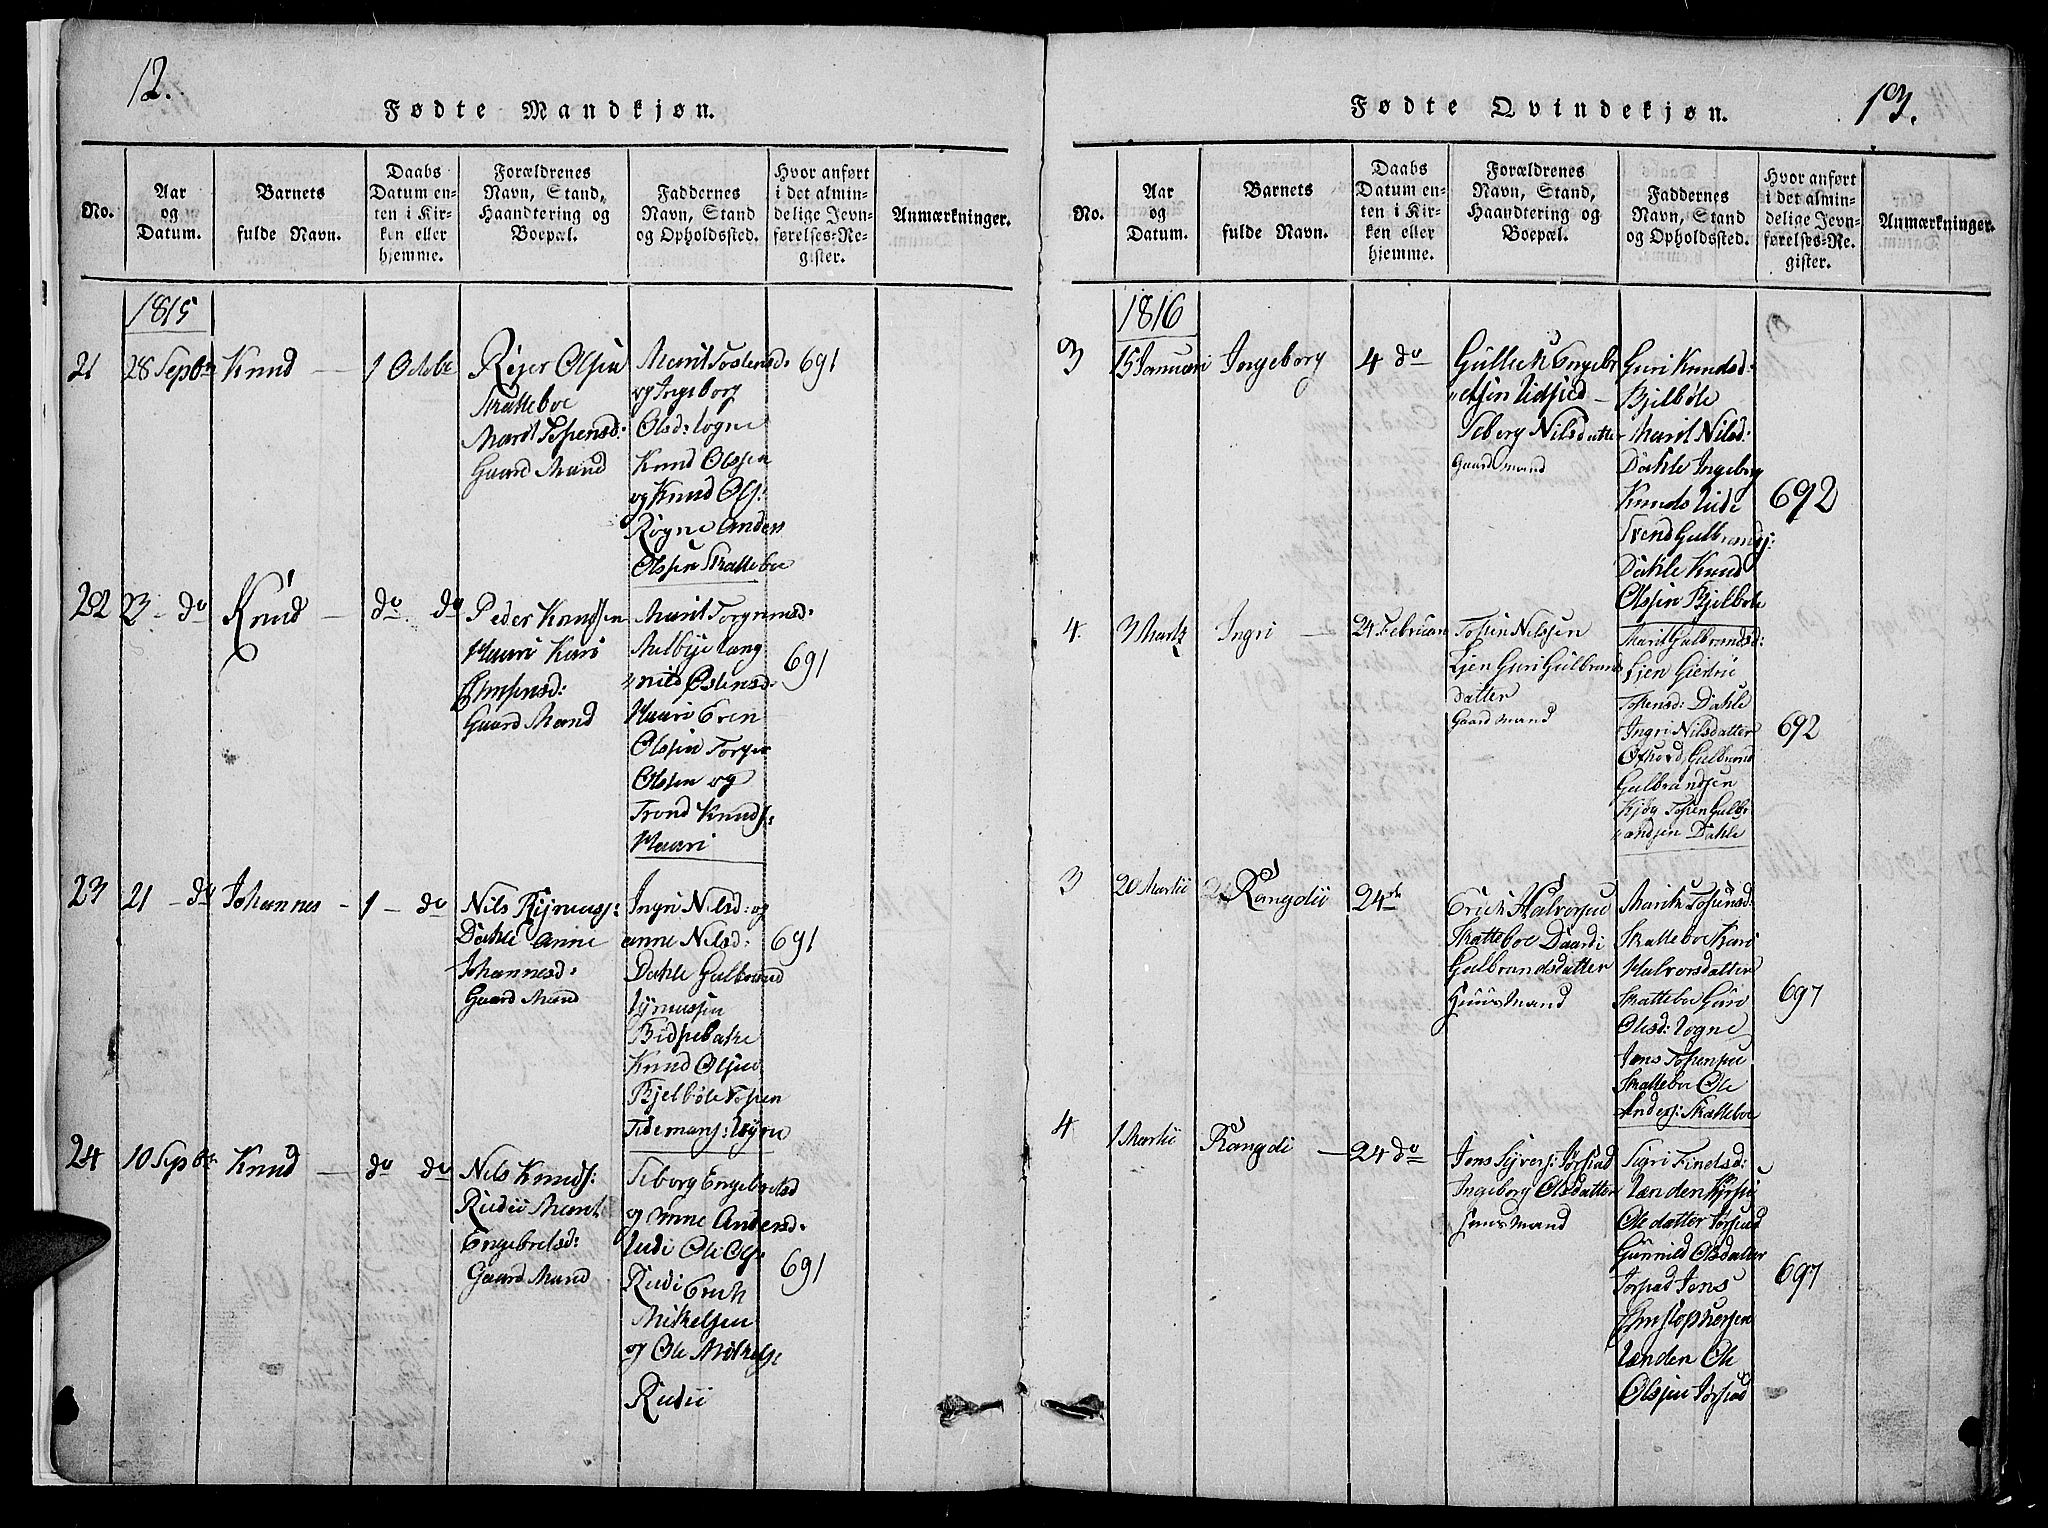 12.
Fødte Mandkjøn.
No.
Aar
og
Datum.
Barnets
fulde Navn.
Daabs
Datum en-
ten i Kir-
ken eller
hjemme.
Forældrenes
Navn, Stand,
Haandtering og
Boepæl.
Faddernes
Navn, Stand
og Opholdssted.
Hvor anført
i det almin-
delige Jevn-
førelses-Re-
gister.
Anmærkninger.
1815
21
28 Septbr
Knud
1 Octobr
Rejer Olsen
Skatteboe
Marit
Gaard Mand
Marit Tostensd:
og Ingeborg
Olsd: Rogne
Knud Olssen
og Knud Ols:
Rogne Anders
Olssen Skatteboe
691
22
23 do
Knud
do do
Peder Knudsen
Haari Kari
Gaard Mand
Marit
Melbye Rang
nild Østensd:
Haari Eren
Olssen Torger
Olssen og
Trond Knuds:
Haari
691
23
21 do
Johannes
1 do
Nils
Dahle Anne
Johannesd:
Gaard Mand
Ingri Nilsd: og
Anne Nilsd:
Dahle Gulbrand
Knud Olsen
Bjelbøle Tosten
Tidemans:
691
24
10 Septbr
Knud
do do
Nils Knuds:
Rudii Marit
Engebretsd:
Gaard Mand
Seborg Engebretsd
og Anne Andersd:
Rudi Ole Ols:
Rudi Erich
Mikelsen
og Ole Mikels:
Rudii
691
13.
Fødte Qvindekjøn.
No.
Aar
og
Datum.
Barnets
fulde Navn.
Daabs
Datum en-
ten i Kir-
ken eller
hjemme.
Forældrenes
Navn, Stand,
Haandtering og
Boepæl.
Faddernes
Navn, Stand
og Opholdssted.
Hvor anført
i det almin-
delige Jevn-
førelses-Re-
gister.
Anmærkninger.
1816
3
15 Januari
Ingeborg
4 do
Gullich Engebr
etsen
Seborg Nilsdatter
Gaardmand
Guri Knudsd:
Bjelbøle
Marit Nilsd:
Dahle Ingeborg
Knuds
Svend Gulbrands:
Dahle Knud
Olssen Bjelbøle
692
4.
3 Martz
Ingri
24 Februari
Tosten Nilssen
Lien Guri Gulbrands
datter
Gaardmand
Marit Gulbrandsd:
Lien
Tostensd: Dahle
Ingri Nilsdatter
Gulbrand
Gulbrandsen
Kjøg Tosten Gulbr
andsen Dahle
692
3
20 Martii
Rangdii
24de
Erich Halvorsen
Skatteboe
Gulbrandsdatter
Huusmand
Marith Tostensd:
Skatteboe Kari
Halvorsdatter
Skatteboe Guro
Olesd: Rogne
Jens Tostensen
Skatteboe Ole
Anders: Skatteboe
697
4
1 Martii
Rangdi
24 do
Jens Syvers: Jørstad
Ingeborg Olsdatter
Huusmand
Sigri Findsd:
Vanden
Ole datter Jørstad
Gunnild Olsdatter
Jørstad Jens
Christophersen
Vænden Ole
Olssen Jørstad
697